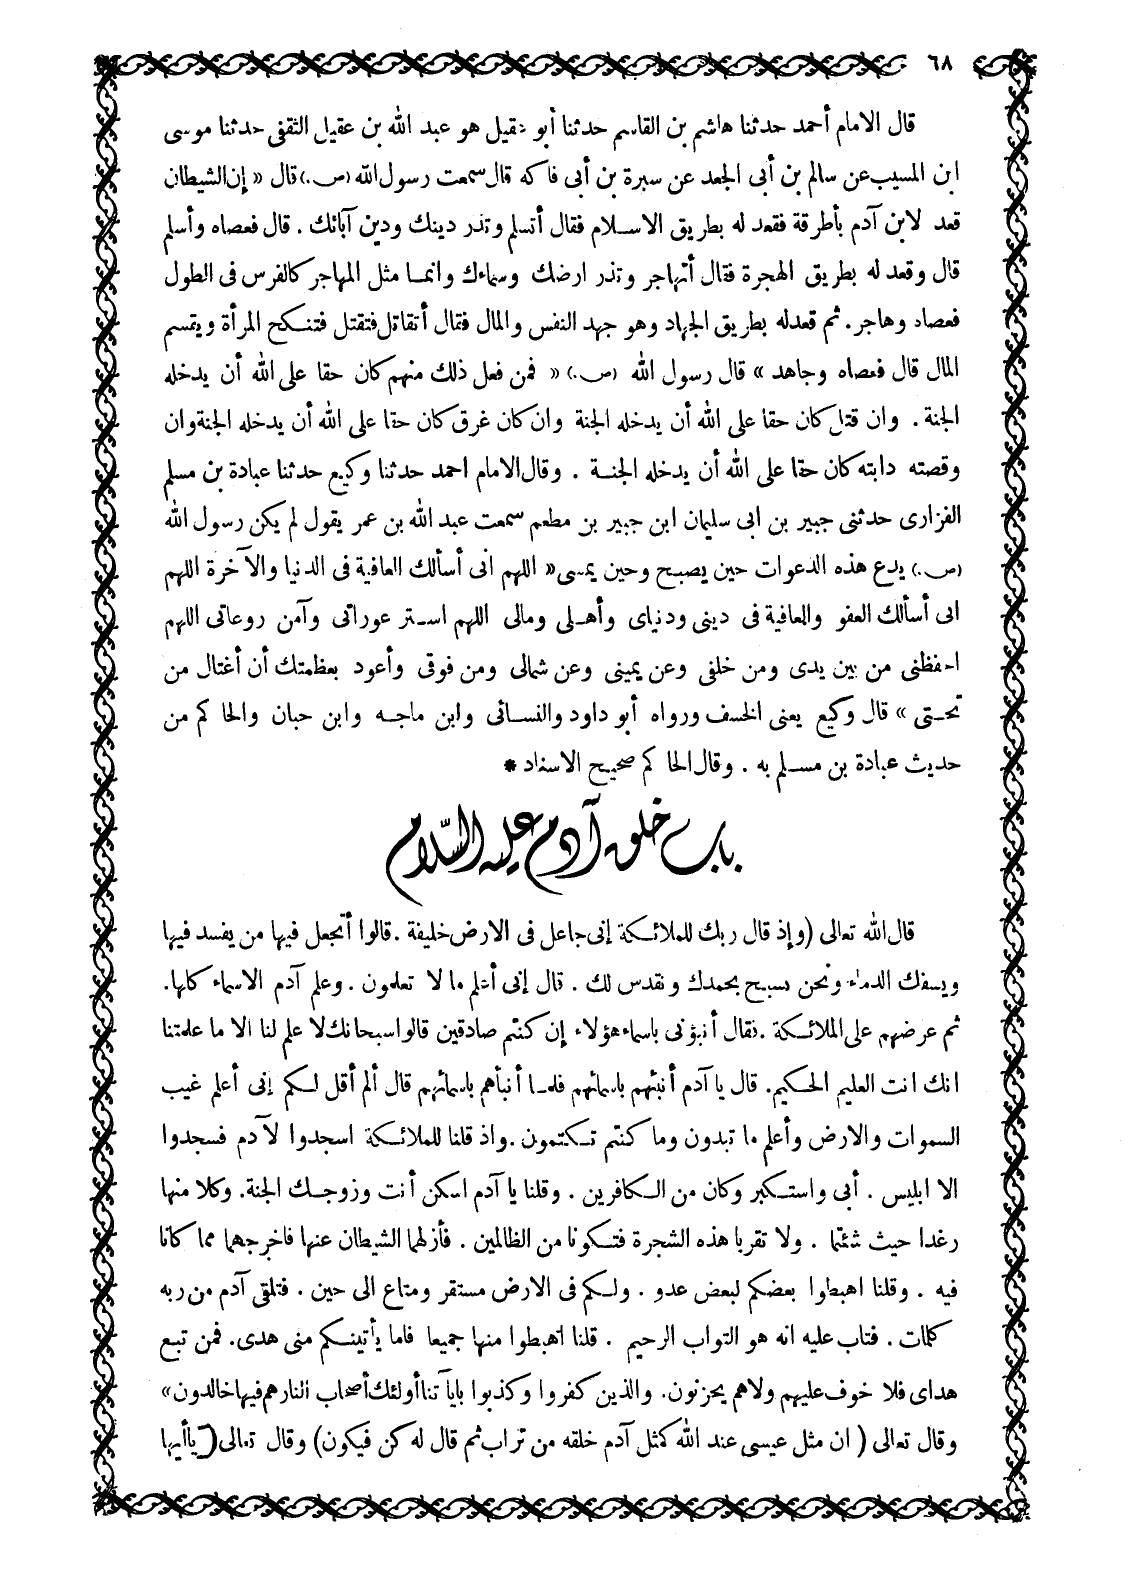 ٦٨
قال الامام أحمد حدثنا هاشم بن القاسم حدثنا أبو عقيل هو عبد الله بن عقيل الثقفى حدثنا موسى
ابن المسيب عن سالم بن أبى الجعد عن سبرة بن أبى فاكه قال سمعت رسول الله (ص.) قال « إن الشيطان
قعد لابن آدم بأطرقة فقعد له بطريق الاسلام فقال أتسلم وتذر دينك ودين آبائك . قال فعصاه وأسلم
قال وقعد له بطريق الهجرة فقال أتهاجر وتذر ارضك وسماءك وانما مثل المهاجر كالفرس فى الطول
فعصاه وهاجر. ثم قعد له بطريق الجهاد وهو جهد النفس والمال فقال أتقاتل فتقتل فتنكح المرأة ويقسم
المال قال فعصاه وجاهد » قال رسول الله (ص.) « فمن فعل ذلك منهم كان حقا على الله أن يدخله
الجنة . وان قتل كان حقا على الله أن يدخله الجنة وان كان غرق كان حقا على الله أن يدخله الجنة وان
وقصته دابته كان حقا على الله أن يدخله الجنة . وقال الامام احمد حدثنا وكيع حدثنا عبادة بن مسلم
الفزارى حدثنى جبير بن ابى سليمان ابن جبير بن مطعم سمعت عبد الله بن عمر يقول لم يكن رسول الله
(ص.) يدع هذه الدعوات حين يصبح وحين يمسى « اللهم انى أسألك العافية فى الدنيا والآخرة اللهم
انى أسألك العفو والعافية فى دينى ودنياى وأهلى ومالى اللهم استر عوراتى وآمن روعاتى اللهم
احفظنى من بين يدى ومن خلفى وعن يمينى وعن شمالى ومن فوقى وأعوذ بعظمتك أن أغتال من
تحتى » قال وكيع يعنى الخسف ورواه أبو داود والنسائى وابن ماجه وابن حبان والحاكم من
حديث عبادة بن مسلم به . وقال الحاكم صحيح الاسناد *
باب خلق آدم عليه السلام
قال الله تعالى (وإذ قال ربك للملائكة إنى جاعل فى الارض خليفة . قالوا أتجعل فيها من يفسد فيها
ويسفك الدماء ونحن نسبح بحمدك ونقدس لك . قال إنى أعلم ما لا تعلمون . وعلم آدم الاسماء كلها.
ثم عرضهم على الملائكة . فقال أنبؤنى باسماء هؤلاء إن كنتم صادقين قالوا سبحانك لا علم لنا الا ما علمتنا
انك انت العليم الحكيم. قال يا آدم أنبئهم باسمائهم فلما أنبأهم باسمائهم قال ألم أقل لكم إنى أعلم غيب
السموات والارض وأعلم ما تبدون وما كنتم تكتمون . واذ قلنا للملائكة اسجدوا لآدم فسجدوا
الا ابليس . أبى واستكبر وكان من الكافرين . وقلنا يا آدم اسكن أنت وزوجك الجنة. وكلا منها
رغدا حيث شئتما . ولا تقربا هذه الشجرة فتكونا من الظالمين . فأزلهما الشيطان عنها فاخرجهما مما كانا
فيه . وقلنا اهبطوا بعضكم لبعض عدو . ولكم فى الارض مستقر ومتاع الى حين . فتلقى آدم من ربه
كلمات . فتاب عليه انه هو التواب الرحيم . قلنا اهبطوا منها جميعا فاما يأتينكم منى هدى. فمن تبع
هداى فلا خوف عليهم ولاهم يحزنون. والذين كفروا وكذبوا بآياتنا أولئك أصحاب النار هم فيها خالدون »
وقال تعالى ( ان مثل عيسى عند الله كمثل آدم خلقه من تراب ثم قال له كن فيكون) وقال تعالى (يا أيها